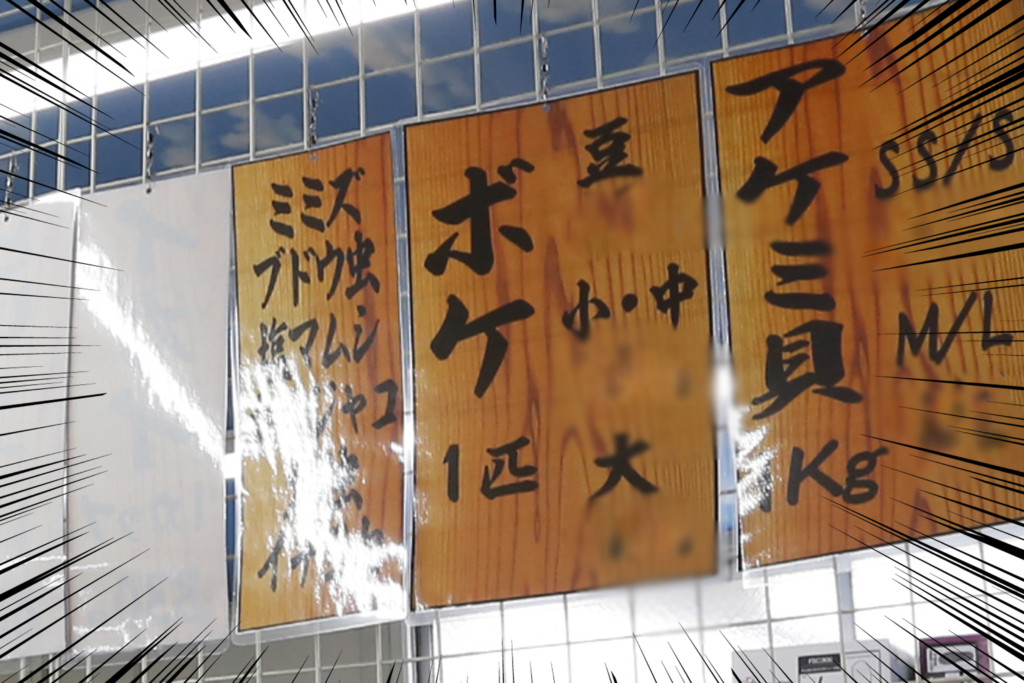 ミミズ
ブドウ虫
塩マムシ
ジャコ
ボケ
1匹
豆
小・中
大
アケミ貝
1Kg
SS/S
M/L